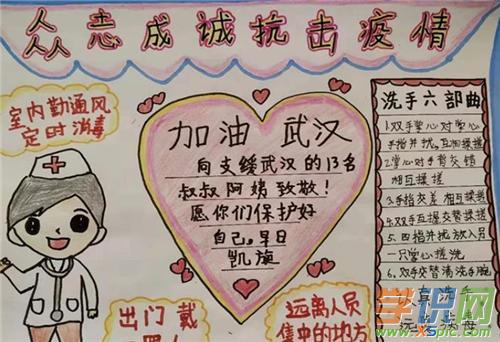 众志成诚抗击疫情
室内勤通风
定时消毒
加油 武汉
向支援武汉的13名
叔叔阿姨致敬!
愿你们保护好
自己,早日
凯旋
洗手六部曲
1.双手掌心对掌心
手指并拢,互相揉搓
2.掌心对手背交错
相互揉搓
3.手指交差 相互揉搓
4.双手互握交替揉搓
5.四指并拢放入另
一只掌心搓洗
6.双手交替清洗手腕
认真洗手
远离病毒
出门 戴
远离人员
集中的地方
学识网
www.xspic.com